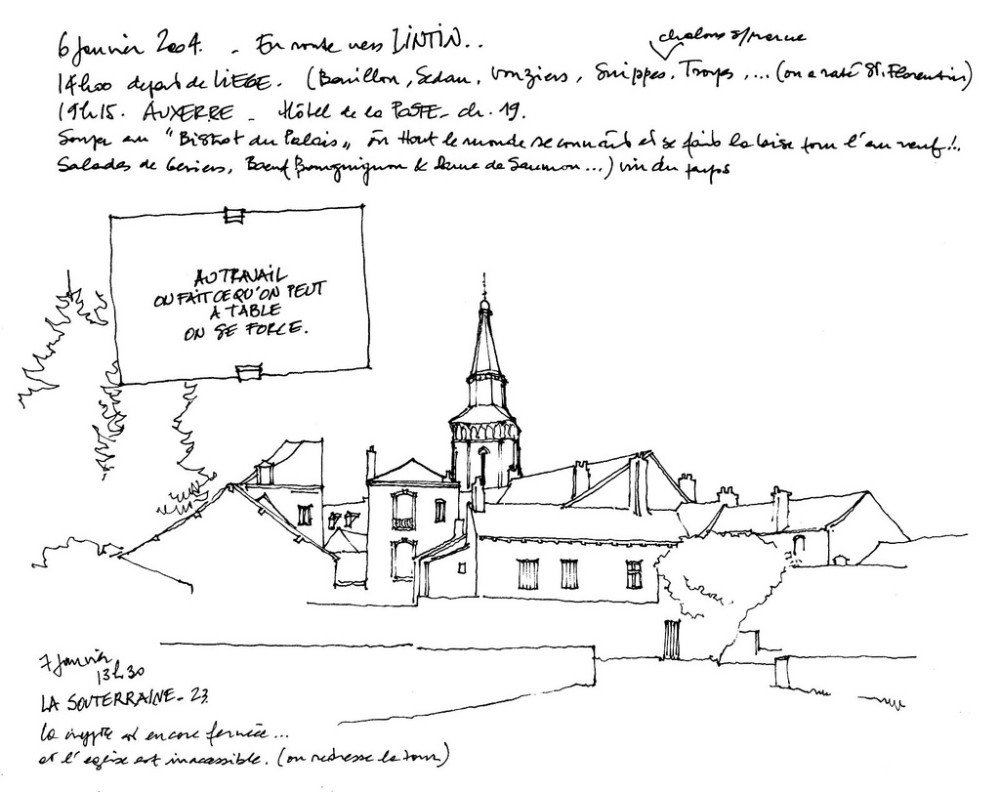 6 Janvier 2004. - En route vers LINTIN..
châlons s/marne
14h00 départ de LIEGE. (Bouillon, Sedan, Vouziers, Suippes, Troyes, ... (on a raté St. Florentin)
19h15. AUXERRE - Hôtel de la POSTE - ch. 19.
Souper au "Bistrot du Palais" où tout le monde se connaît et se fait la bise pour l'an neuf!..
Salades de Gésiers, Boeuf Bourguignon & Darne de Saumon...) vin du pays
AU TRAVAIL
ON FAIT CE QU'ON PEUT
A TABLE
ON SE FORCE.
7 Janvier
13h30
LA SOUTERRAINE - 23.
la crypte est encore fermée...
et l'église est inaccessible. (on redresse la tour)